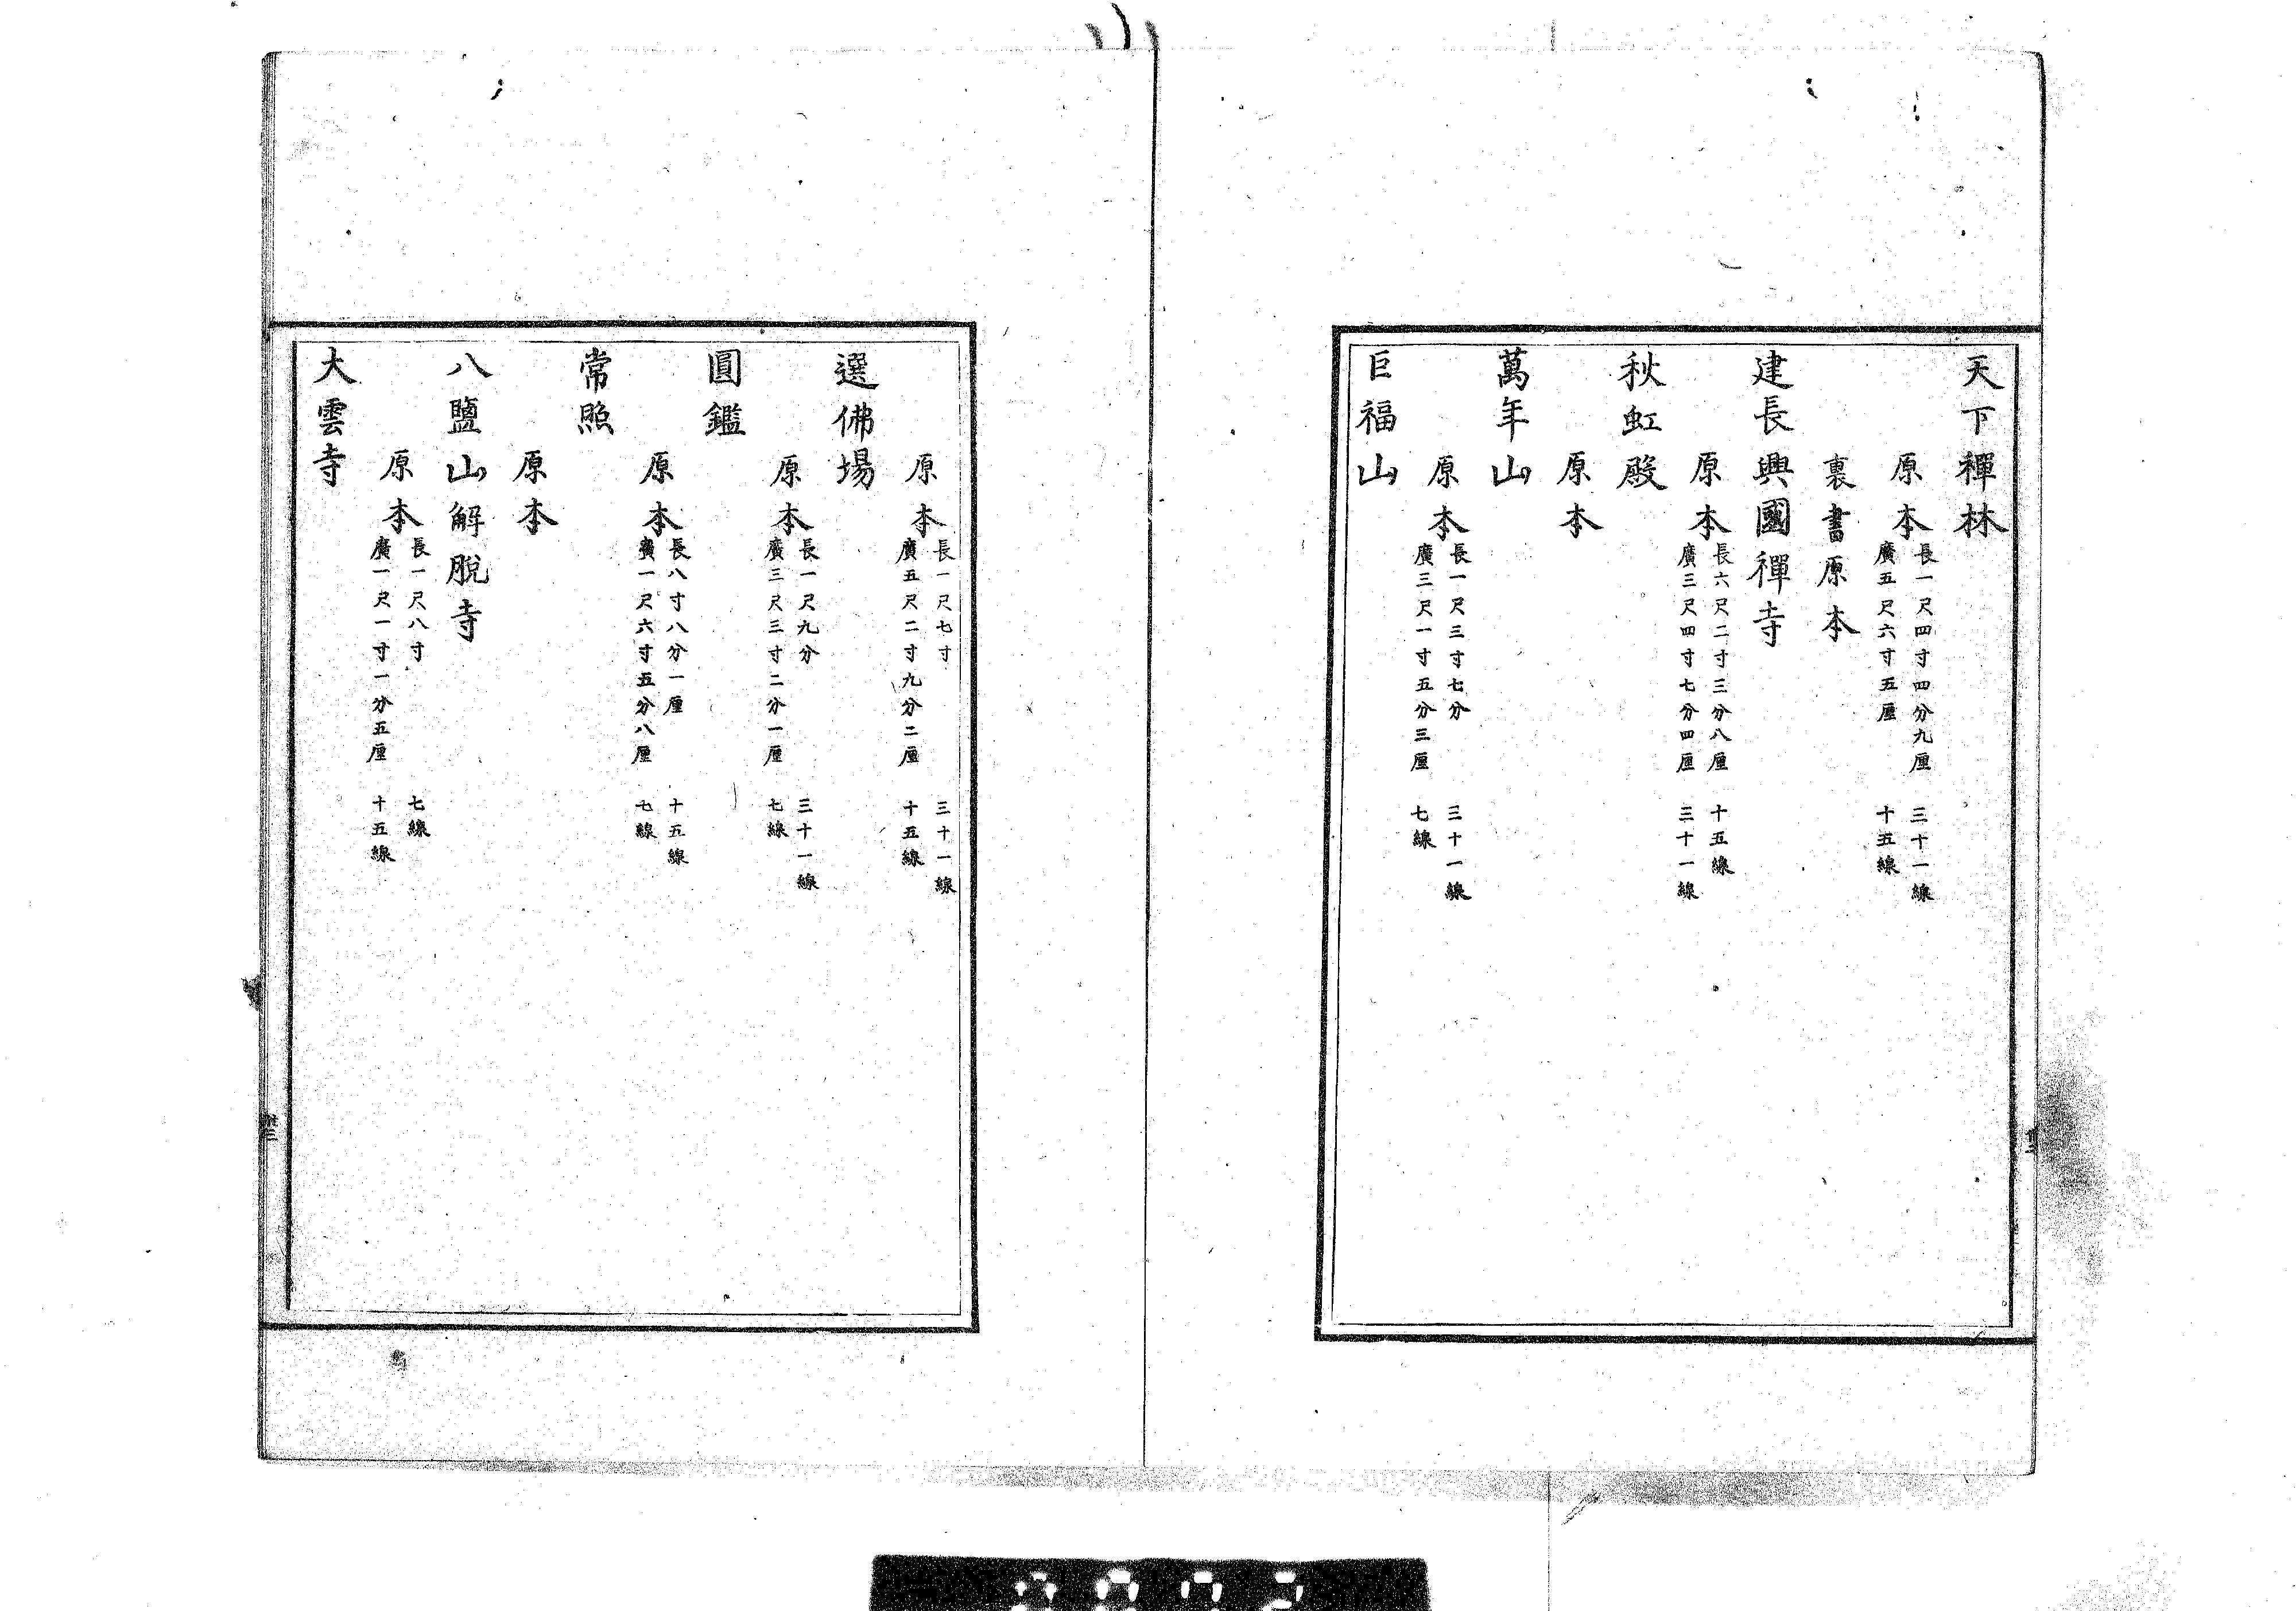 天下禪林
原本 長一尺四寸四分九厘 三十一線
廣五尺六寸五厘 十五線
裏書原本
建長興國禪寺
原本 長六尺二寸三分八厘 十五線
廣三尺四寸七分四厘 三十一線
秋虹殿
原本
萬年山
原本 長一尺三寸七分 三十一線
廣三尺一寸五分三厘 七線
巨福山
原本 長一尺七寸 三十一線
廣五尺二寸九分二厘 十五線
選佛場
原本 長一尺九分 三十一線
廣三尺三寸二分一厘 七線
圓鑑
原本 長八寸八分一厘 十五線
廣一尺六寸五分八厘 七線
常照
原本
八鹽山解脫寺
原本 長一尺八寸 七線
廣一尺一寸一分五厘 十五線
大雲寺